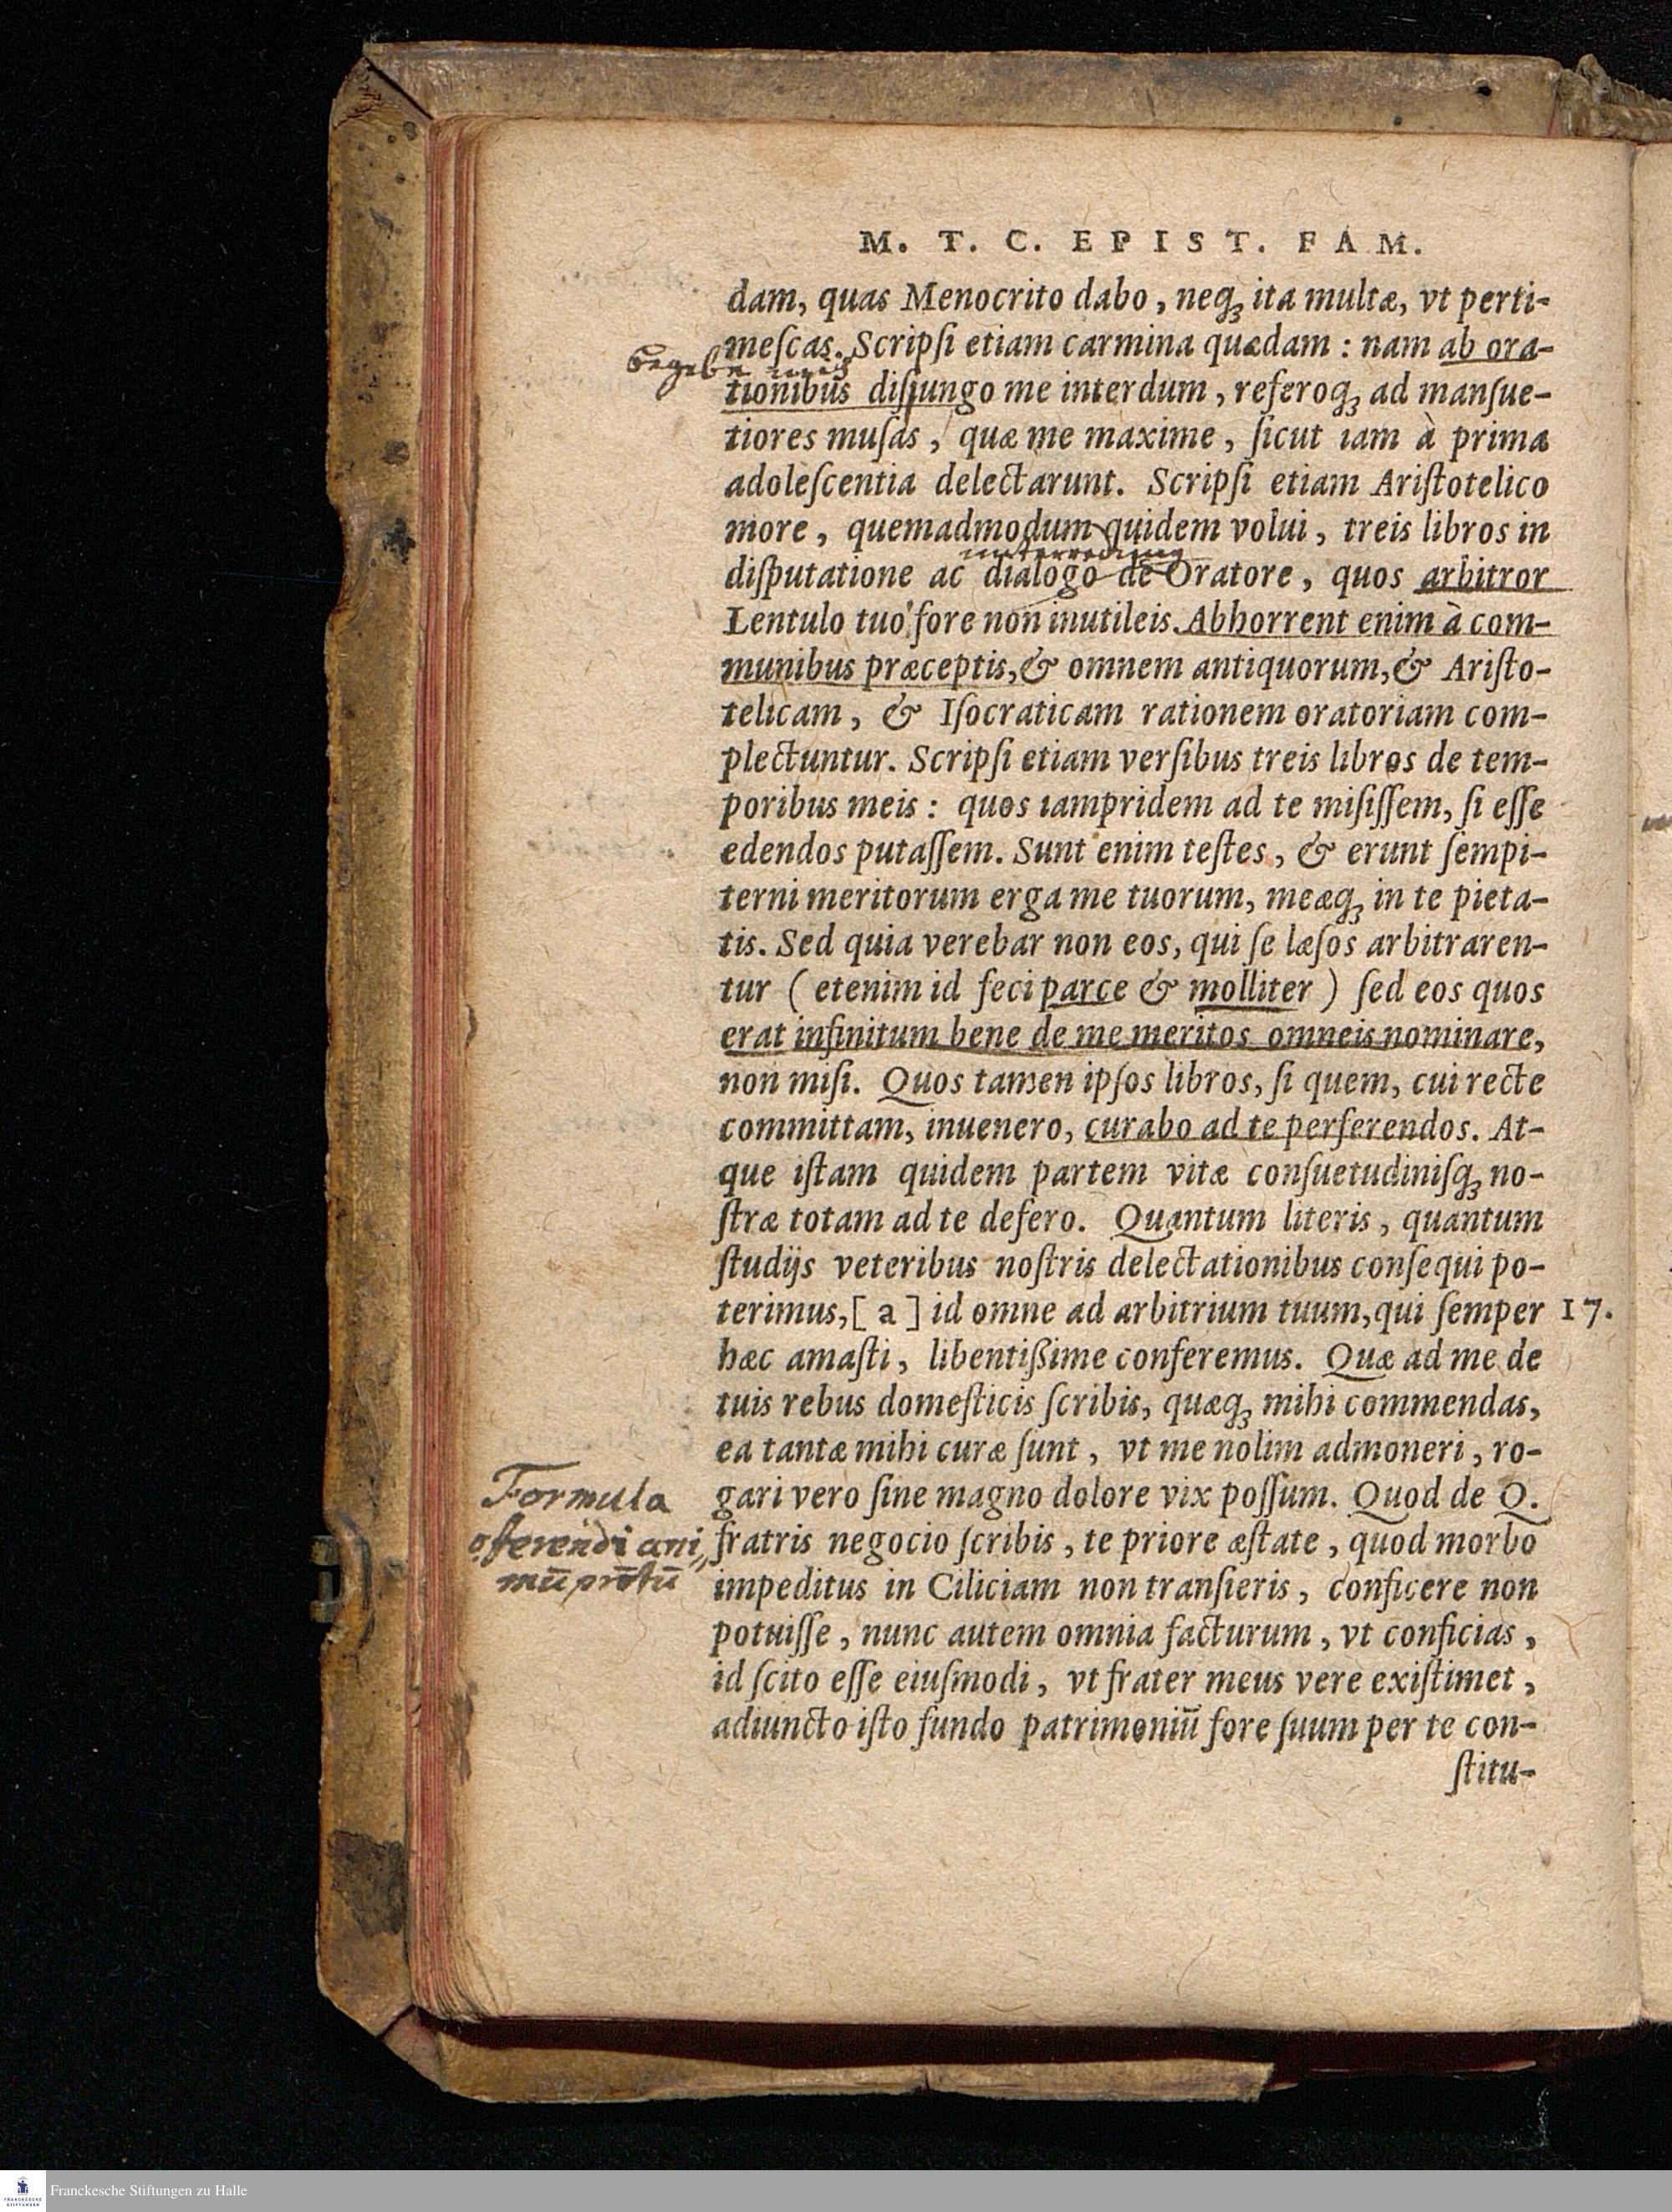 M. T. C. EPIST. FAM.
dam, quas Menocrito dabo, neqꝫ ita multæ, vt perti-
meſcas. Scripſi etiam carmina quædam: nam ab ora-
begebe mich
tionibus diſiungo me interdum, referoqꝫ ad manſue-
tiores muſas, quæ me maxime, ſicut iam à prima
adoleſcentia delectarunt. Scripſi etiam Ariſtotelico
more, quemadmodum quidem volui, treis libros in
unterredung
diſputatione ac dialogo de Oratore, quos arbitror
Lentulo tuo fore non inutileis. Abhorrent enim à com-
munibus præceptis, & omnem antiquorum, & Ariſto-
telicam, & Iſocraticam rationem oratoriam com-
plectuntur. Scripſi etiam verſibus treis libros de tem-
poribus meis: quos iampridem ad te miſiſſem, ſi eſſe
edendos putaſſem. Sunt enim teſtes, & erunt ſempi-
terni meritorum erga me tuorum, meæqꝫ in te pieta-
tis. Sed quia verebar non eos, qui ſe læſos arbitraren-
tur (etenim id feci parce & molliter) ſed eos quos
erat infinitum bene de me meritos omneis nominare,
non miſi. Quos tamen ipſos libros, ſi quem, cui recte
committam, inuenero, curabo ad te perferendos. At-
que iſtam quidem partem vitæ conſuetudiniſqꝫ no-
ſtræ totam ad te defero. Quantum literis, quantum
ſtudijs veteribus noſtris delectationibus conſequi po-
terimus, [a] id omne ad arbitrium tuum, qui ſemper 17.
hæc amaſti, libentißime conferemus. Quæ ad me de
tuis rebus domeſticis ſcribis, quæqꝫ mihi commendas,
ea tantæ mihi curæ ſunt, vt me nolim admoneri, ro-
gari vero ſine magno dolore vix poſſum. Quod de Q.
fratris negocio ſcribis, te priore æſtate, quod morbo
impeditus in Ciliciam non tranſieris, conficere non
potuiſſe, nunc autem omnia facturum, vt conficias,
id ſcito eſſe eiuſmodi, vt frater meus vere exiſtimet,
adiuncto iſto fundo patrimoniū fore ſuum per te con-
ſtitu-
Formula
offerendi ani
mū
Franckesche Stiftungen zu Halle
FRANCKESCHE
STIFTUNGEN